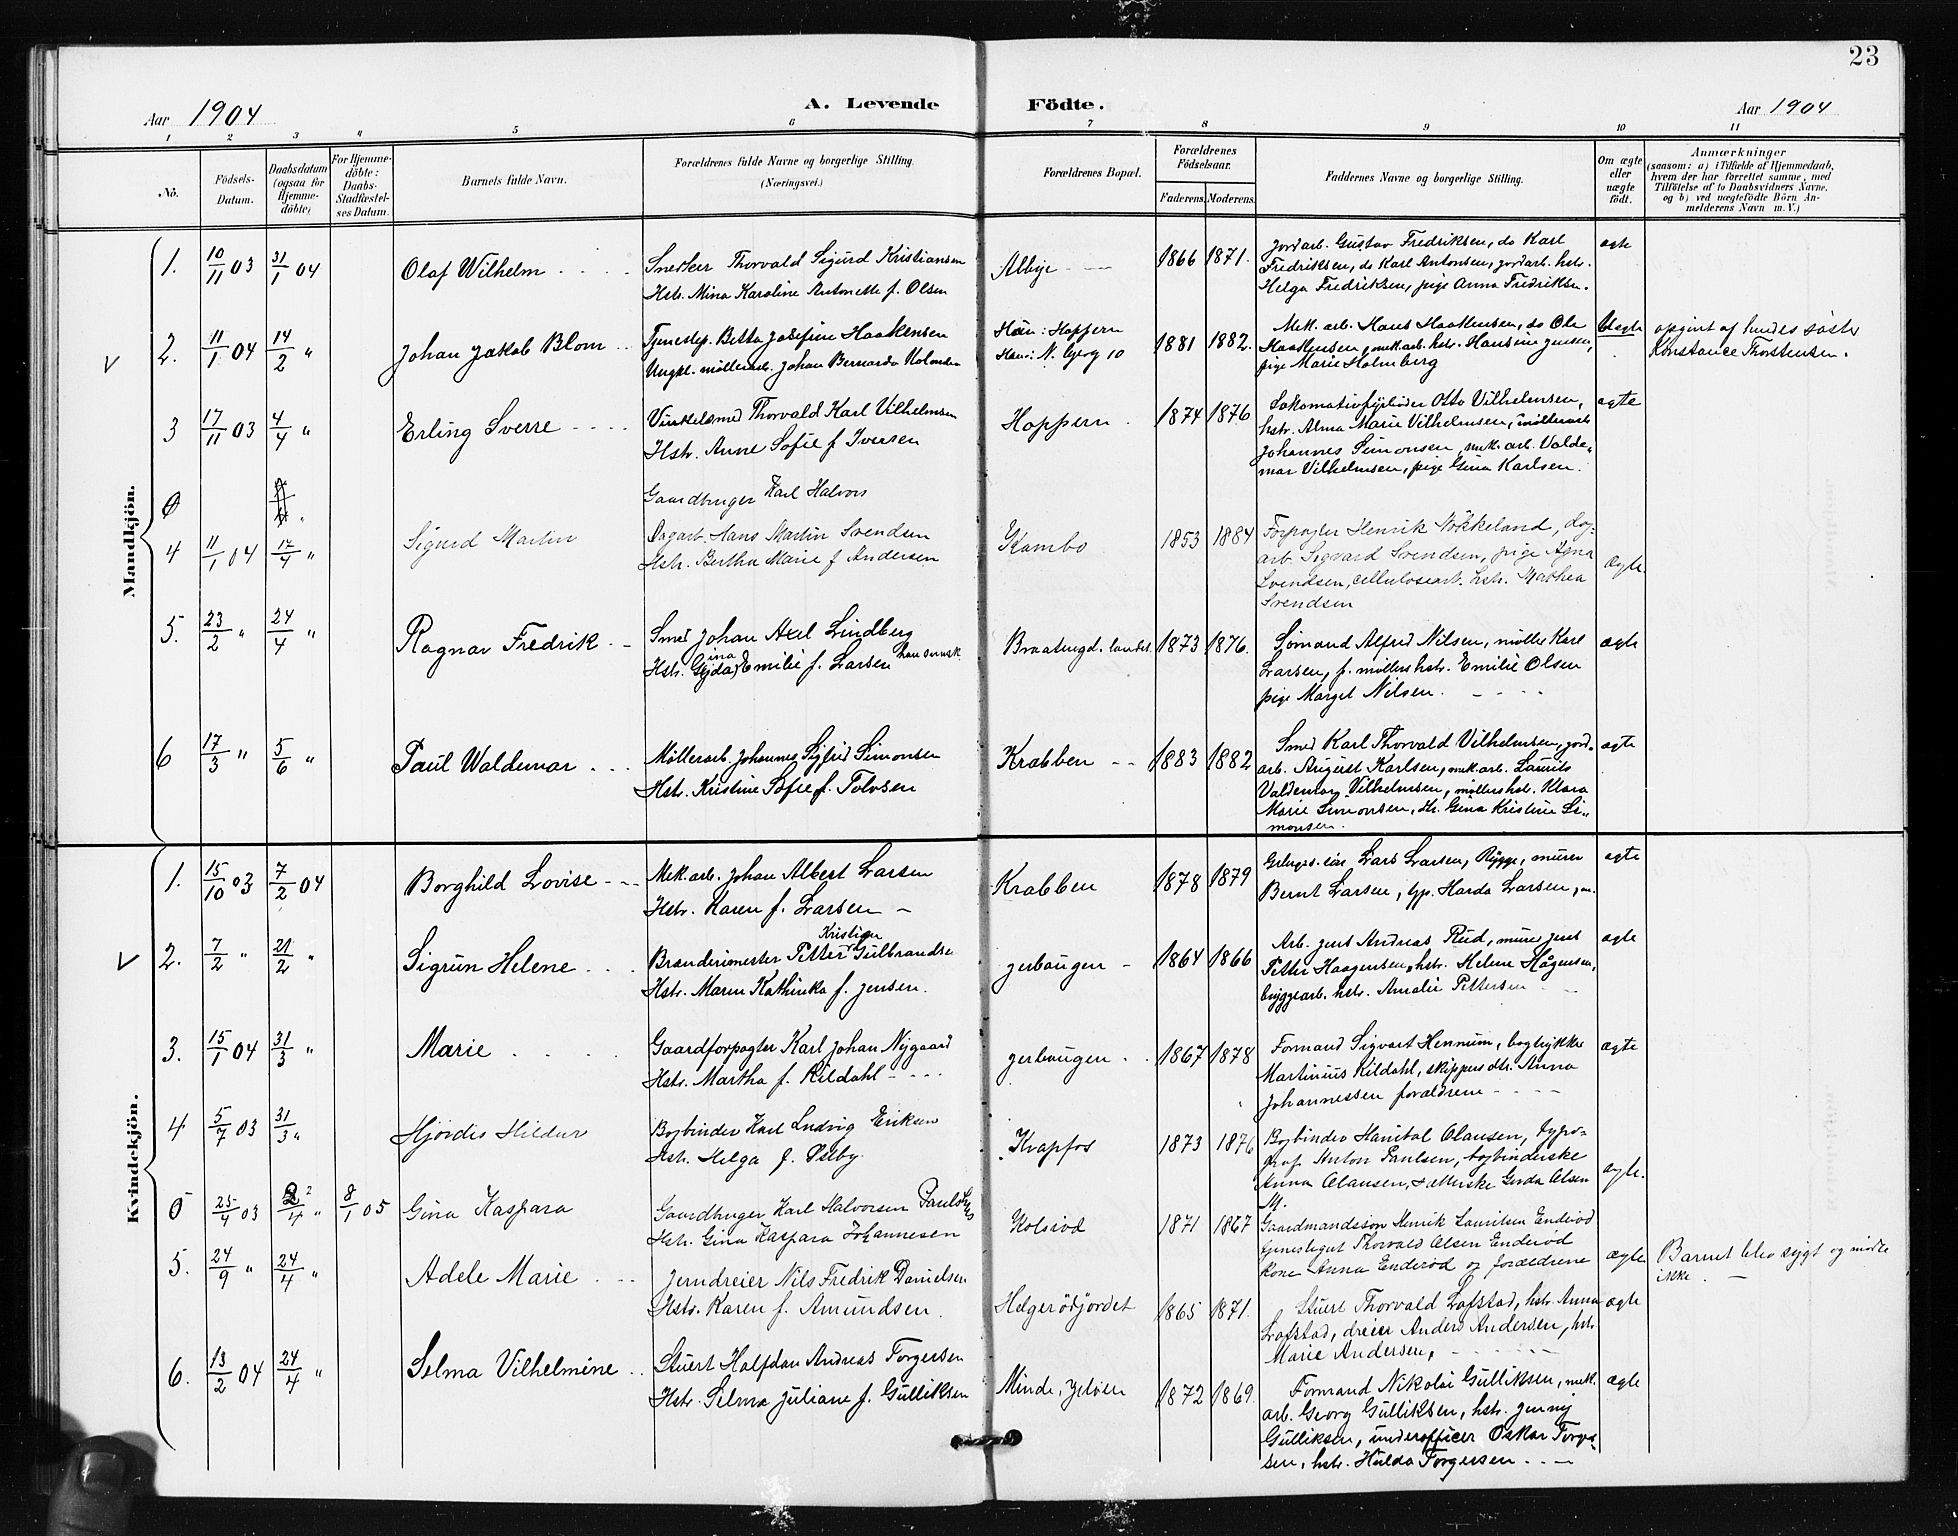 23
Aar 1904
A. Levende
Födte.
Aar 1904
1 2 3 4 5 6 7 8 9 10 11
No.
Födsels-Datum.
Daabsdatum (ogsaa for Hjemme-döbte)
For Hjemme-döbte: Daabs-Stadfæstel-ses Datum.
Barnets fulde Navn.
Forældrenes fulde Navne og borgerlige Stilling.
(Næringsvei.)
Forældrenes Bopæl.
Forældrenes Födselsaar.
Faderens. Moderens.
Faddernes Navne og borgerlige Stilling.
Om ægte eller uægte födt.
Anmærkninger
(saasom: a) i Tilfælde af Hjemmedaab,
hvem der har forrettet samme, med
Tilföielse af to Daabsvidners Navne.
og b) ved uægtefödte Börn An-
melderens Navn m. V.)
Mandkjön.
1. 10/11 03 31/1 04 Olaf Wilhelm
Snedker Thorvald Sigurd Kristiansen
Hstr. Mina Karoline Antonette f. Olsen
Albye 1866 1871.
Jordarb. Gustav Fredriksen, do Karl
Fredriksen, do Karl Antonsen, jordarb. hstr.
Helga Fredriksen, pige Anna Fredriksen.
ægte
V 2. 11/1 04 14/2 " Johan Jakob Blom
Tjenestep. Betta Josefine Haakensen
Ungk. møllearb. Johan Bernardo
Hoppern
1881 1882.
Mek. arb. Hans Haakensen, do Ole
Haakensen, mek. arb. hstr. Hansine Jensen,
pige Marie Holmberg
Uægte
opgivt af hendes søster
Konstance Thorstensen.
3 17/11 03 4/4 " Erling Sverre
Thorvald Karl Vilhelmsen
Hstr. Anne Sofie f Iversen
Hoppern. 1874 1876
Lokomotivfyrbøder Otto Vilhelmsen,
hstr. Alma Marie Vilhelmsen, møllearb
Johannes Simonsen, mek. arb. Valde-
mar Vilhelmsen, pige Gina Karlsen.
ægte
0
Gaardbruger Karl Halvors
4 11/1 04 17/4 " Sigurd Martin
Dagarb. Hans Martin Svendsen
Hstr. Bertha Marie f Andersen
Kambo 1853 1884
Forpagter Henrik Nøkkeland, dag-
arb Sigvard Svendsen, pige Agna
Svendsen, cellulosearb. hstr. Mathea
Svendsen
Ægte.
5. 23/2 " 24/4 " Ragnar Fredrik
Smed Johan Axel Lindberg
Hstr. Gina Emilie f. Larsen han svensk.
Braatengd. landet. 1873 1876.
Sømand Alfred Nilsen, møller Karl
Larsen, f. møllers hstr. Emilie Olsen
pige Marget Nilsen.
ægte
6 17/3 " 5/6 " Paul Waldemar
Møllerarb. Johannes Sigfrid Simonsen
Hstr. Kristine Sofie f. Tolvsen
Krabben 1883 1882
Smed Karl Thorvald Vilhelmsen, jord-
arb. August Karlsen, mek. arb. Laurits
Valdemar Vilhelmsen, møllers hstr. Klara
Marie Simonsen, Gina Kristine Si-
monsen.
ægte
Kvindekjön.
1. 15/10 03 7/2 04 Borghild Lovise
Mek. arb. Johan Albert Larsen
Hstr. Karen f. Larsen
Krabben 1878 1879
Lars Larsen, Rygge, murer
Bernt Larsen, Harda Larsen,
ægte
V 2. 7/2 " 21/2 " Sigrun Helene
Kristian
Brænderimester Petter Gulbrandse
Hstr. Maren Kathinka f. Jensen.
Jerbaugen 1864 1866
Arb. Jens Andreas Rud, murer Jens
Petter Haagensen, hstr. Helene Hågensen,
bryggearb. hstr. Amalie Pettersen
ægte
3. 15/1 04 31/3 " Marie
Gaardforpagter Karl Johan Nygaard
Hstr. Martha f. Kildahl
Jerbaugen 1867 1878
Formand Sigvart Hennum, bogtrykker
Martinius Kildahl, skippers dtr. Anna
Johannessen forældrene
ægte
4 5/7 03 31/3 " Hjørdis Hildur
Bogbinder Karl Ludvig Eriksen
Hstr. Helga f. Østby
Krapfos 1873 1876
Bogbinder Hanibal Olausen, typo-
graf Anton Paulsen, bogbinderske
Anna Olausen, Gerda Olsen
ægte.
0 25/4 03 2/4 " 8/1 05 Gina Kaspara
Gaardbruger Karl Halvorsen
Hstr. Gina Kaspara Johannesen
Kolsrød 1871 1867
Gaardmandssøn Henrik Lauritsen Enderød
Tjenestegut Thorvald Olsen Enderød
Kone Anna Enderød og forældrene
ægte
Barnet blev sygt og mødte
ikke.
5. 24/9 " 24/4 " Adele Marie
Jerndreier Nils Fredrik Danielsen
Hstr. Karen f. Amundsen.
Helgerødjordet 1865 1871.
Stuert Thorvald Lofstad, hstr. Anna
Lofstad, dreier Anders Andersen, hstr
Marie Andersen,
ægte
6. 13/2 04 24/4 " Selma Vilhelmine
Stuert Halfdan Andreas Torgersen
Hstr. Selma Juliane f. Gulliksen
Minde, Jeløen 1872 1869.
Formand Nikolai Gulliksen, mek.
arb. Georg Gulliksen, hstr. Jenny
Gulliksen, underofficer Oskar Torger-
sen, hstr. Hulda Torgersen
ægte